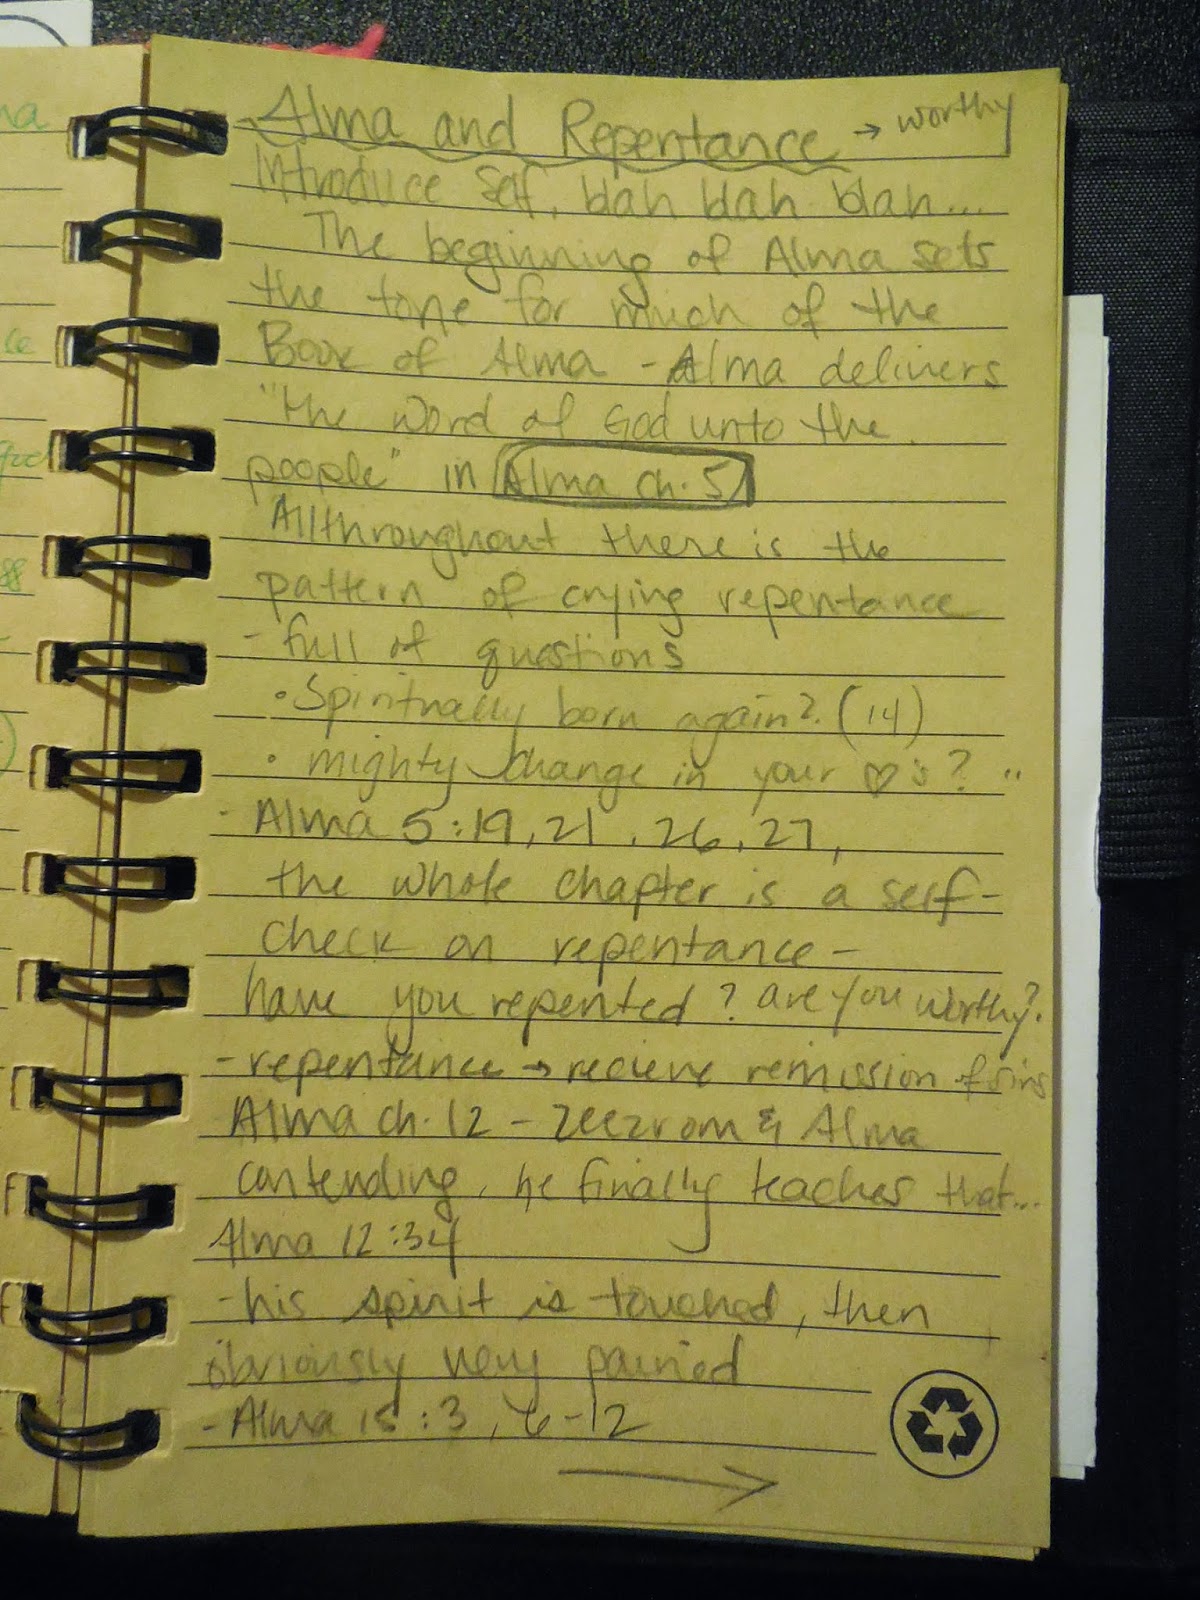 Alma and Repentance → worthy
Introduce Self, blah blah blah...
The beginning of Alma sets
the tone for much of the
Book of Alma - Alma delivers
"the word of God unto the
people" in Alma ch. 5
Allthroughout there is the
pattern of crying repentance
- full of questions
• Spiritually born again? (14)
• mighty change in your ♡'s? "
- Alma 5:19, 21, 26, 27,
the whole chapter is a self-
check on repentance -
have you repented? are you worthy?
- repentance → recieve remission of sins
Alma ch. 12 - Zeezrom & Alma
contending, he finally teaches that...
Alma 12:34
- his spirit is touched, then
obviously very pained
- Alma 15:3, 6-12
→